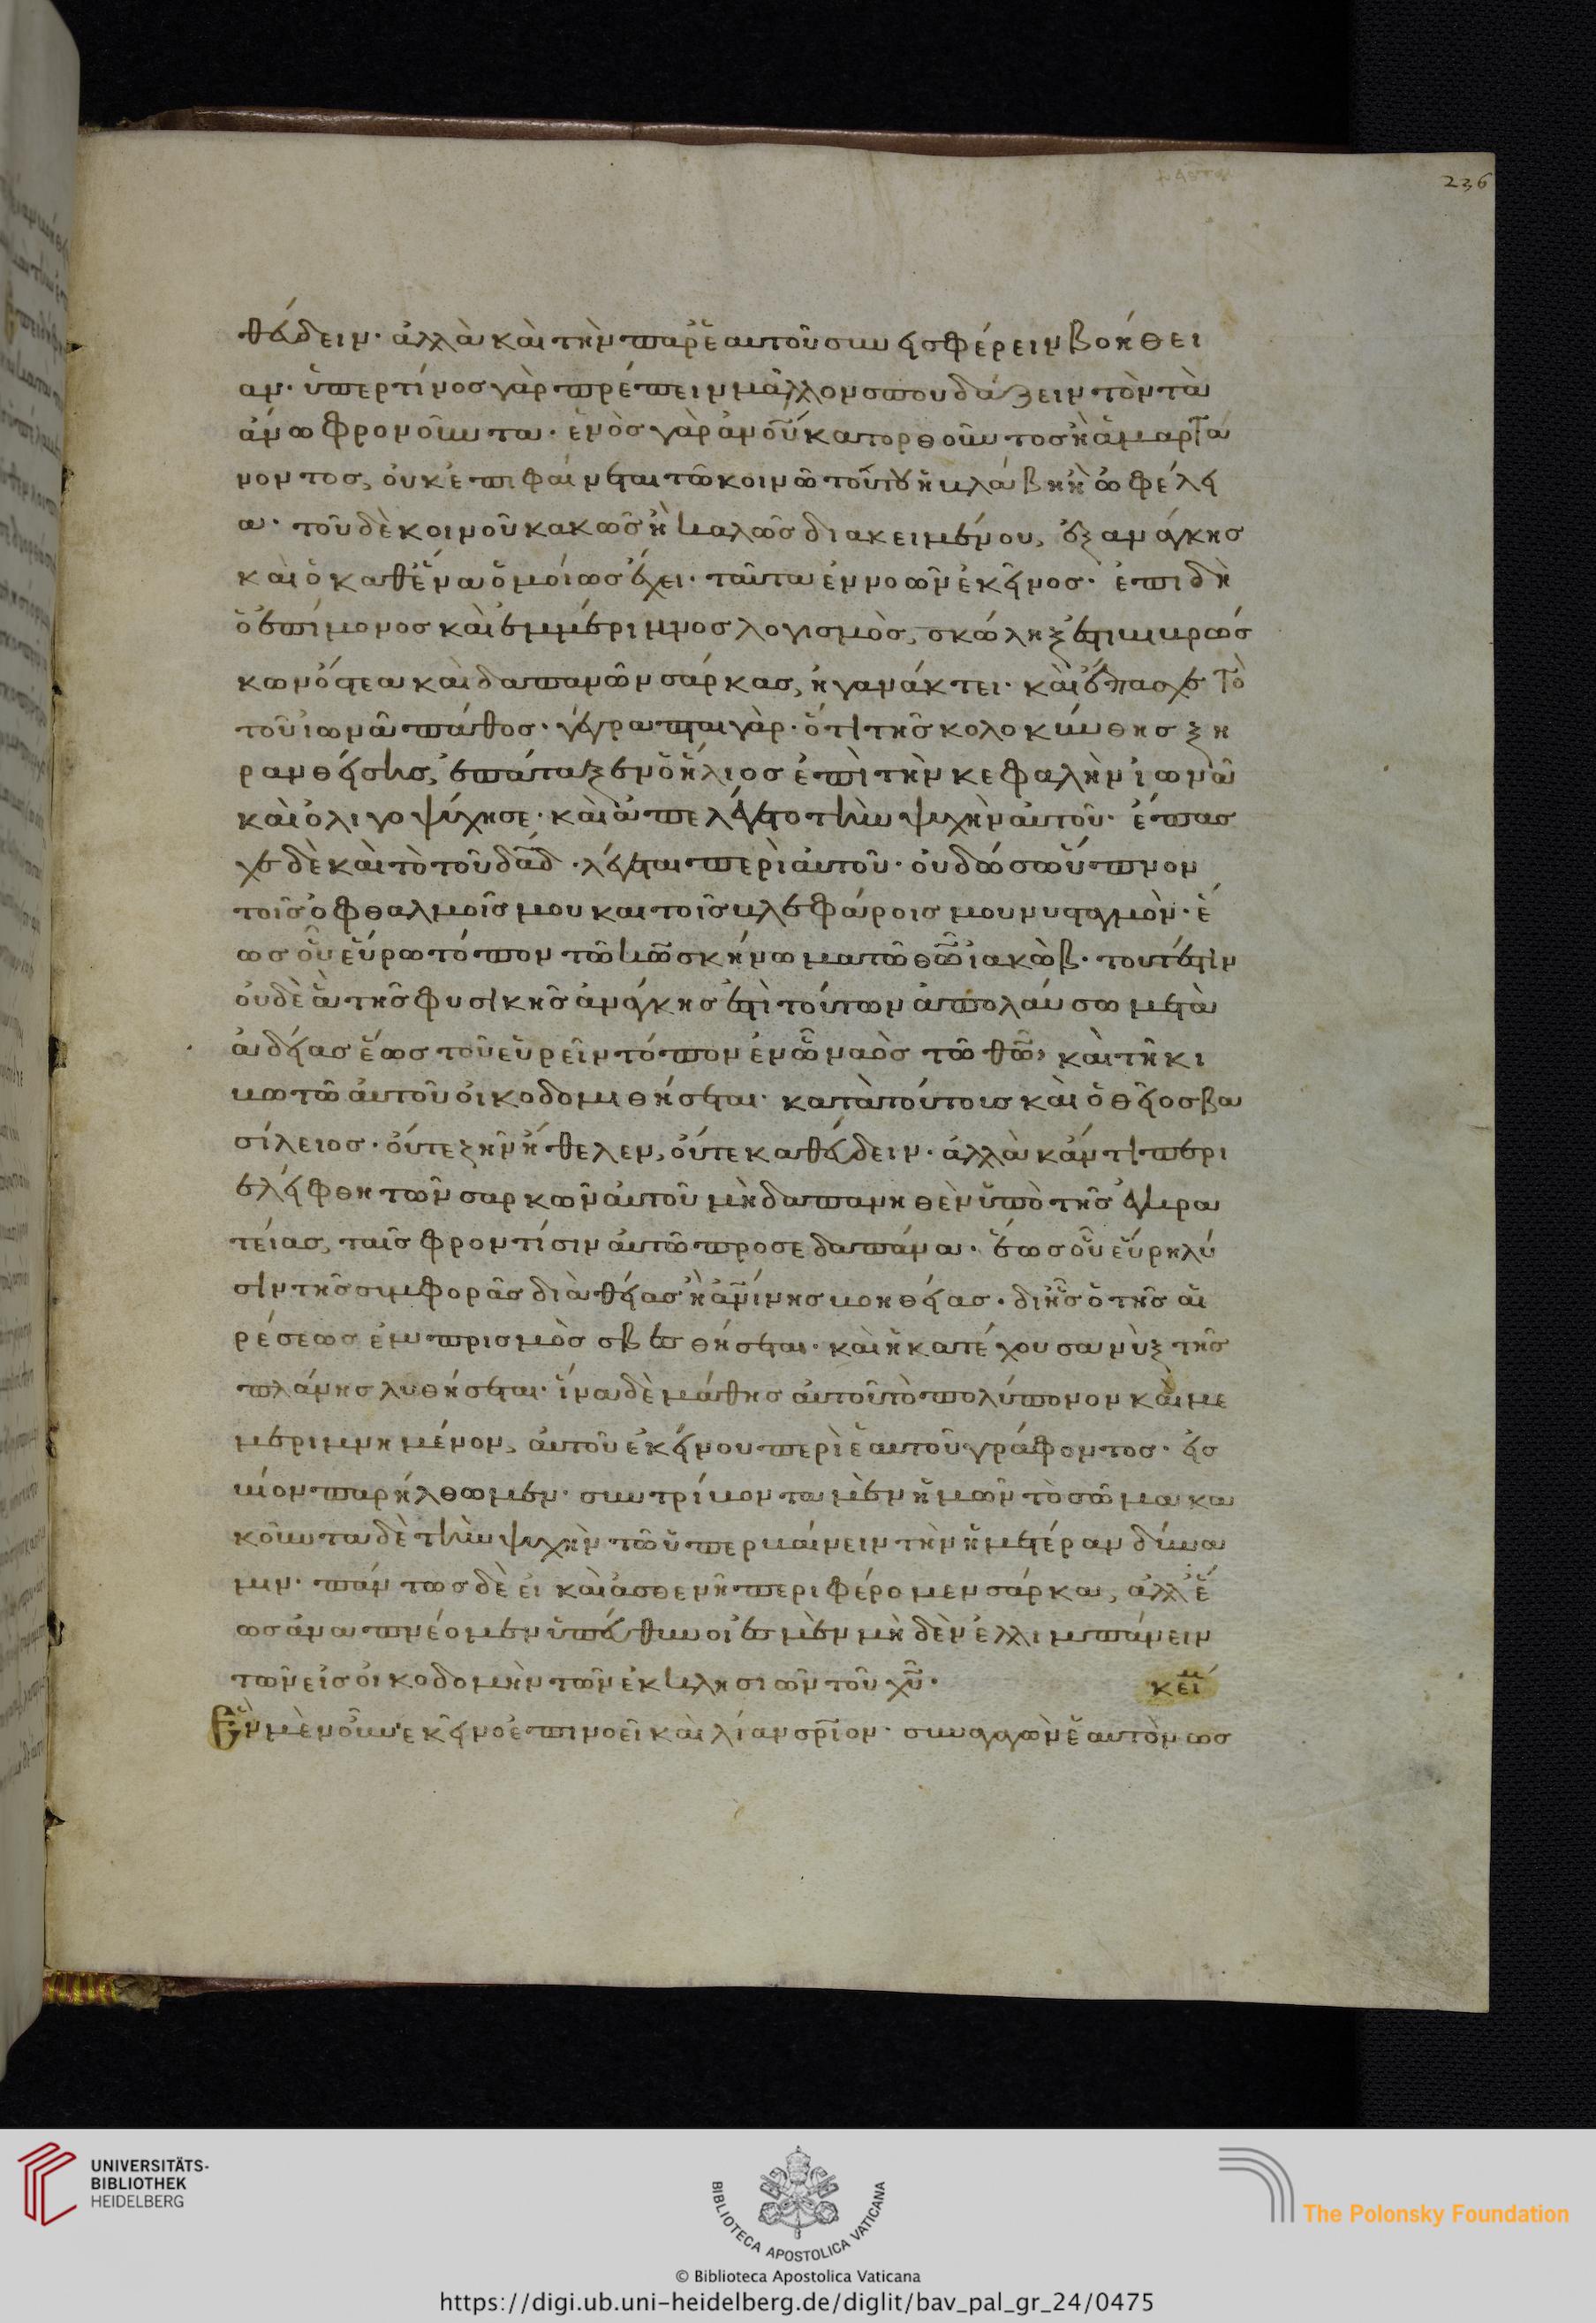 236
θεύδειν· ἀλλὰ καὶ τὴν παρ' ἑαυτοῦ συνεισφέρειν βοήθει
αν· ὑπερ τίνος γὰρ πρέπειν μᾶλλον σπουδάζειν τὸν τὰ
ἄνω φρονοῦντα· ἑνὸς γὰρ ἀνοῦ κατορθοῦντος ἢ ἁμαρτά
νοντος, οὐκ ἐπιφαίνεται τῶ κοινῶ τούτου ἡ βλάβη ἢ ὠφέλει
α· τοῦ δὲ κοινοῦ κακῶς ἢ καλῶς διακειμένου, ἐξ ανάγκης
καὶ ὁ καθ' ἕνα ὁμοίως ἔχει· ταῦτα ἐννοῶν ἐκεῖνος· ἐπιδὴ
ὁ ἐπίμονος καὶ ἐμμέριμνος λογισμὸς, σκώληξ ἐστι βιβρώσ
κων ὀστέα καὶ δαπανῶν σάρκας, ἠγανάκτει· καὶ ἔπασχε τὸ
τοῦ ἰωνᾶ πάθος· γέγραπται γὰρ· ὅτι τῆς κολοκύνθης ξη
ρανθείσης, ἐπάταξεν ὁ ἥλιος ἐπὶ τὴν κεφαλὴν ἰωνᾶ
καὶ ὀλιγοψύχησε· καὶ ἀπελέγετο τὴν ψυχὴν αὐτοῦ· ἔπασ
χε δὲ καὶ τὸ τοῦ δαδ· λέγεται περὶ αὐτοῦ· οὐ δώσω ὕπνον
τοῖς ὀφθαλμοῖς μου και τοῖς βλεφάροις μου νυσταγμὸν· ἕ
ως οὗ εὕρω τόπον τῶ κῶ σκήνωμα τῶ θῶ ἰακὼβ· τουτέστιν
οὐδὲ ἃ τῆς φυσικῆς ἀνάγκης ἐστὶ τούτων ἀπολαύσω μετὰ
ἀδείας ἕως τοῦ εὑρεῖν τόπον ἐν ὧ ναὸς τῶ θῶ, καὶ τῆ κι
βωτῶ αὐτοῦ οἰκοδομιθήσεται· κατὰ τούτοις καὶ ὁ θεῖος βα
σίλειος· οὔτε ζῆν ἤθελεν, οὔτε καθεύδειν· ἀλλὰ κάν τι περι
ελείφθη τῶν σαρκῶν αὐτοῦ μὴ δαπανηθὲν ὑπὸ τῆς ἐγκρα
τείας, ταῖς φροντίσιν αὐτῶ προσεδαπάνα· ἕως οὗ εὕρη λύ
σιν τῆς συμφορᾶς διὰ θείας ἢ ἀνίνης βοηθείας· δι ἧς ὁ τῆς αἱ
ρέσεως ἐμπρισμὸς σβεσθήσεται· καὶ ἡ κατέχουσα νὺξ τῆς
πλάνης λυθήσεται· ἵνα δὲ μάθης αὐτοῦ τὸ πολύπονον καὶ με
μεριμνημένον, αὐτοῦ ἐκείνου περὶ ἑαυτοῦ γράφοντος· εἰς
βίον παρήλθωμεν· συντρίβοντα μὲν ἡμῶν τὸ σῶμα κα
κοῦντα δὲ τὴν ψυχὴν τῶ ὑπερβαίνειν τὴν ἡμετέραν δύνα
μιν· πάντως δὲ εἰ καὶ ἀσθενῆ περιφέρομεν σάρκα, ἀλλ' ἕ
ως ἀναπνέομεν ὑπεύθυνοί ἐσμὲν μὴδὲν ἐλλιμπάνειν
τῶν εἰς οἰκοδομὴν τῶν ἐκκλησιῶν τοῦ χῦ· κεί
Ἓν μὲν οὖν ἐκεῖνο ἐπινοεῖ καὶ λίαν σρῖον· συναγαγὼν ἑαυτὸν ως
UNIVERSITÄTS-
BIBLIOTHEK
HEIDELBERG
BIBLIOTECA APOSTOLICA VATICANA
The Polonsky Foundation
© Biblioteca Apostolica Vaticana
https://digi.ub.uni-heidelberg.de/diglit/bav_pal_gr_24/0475